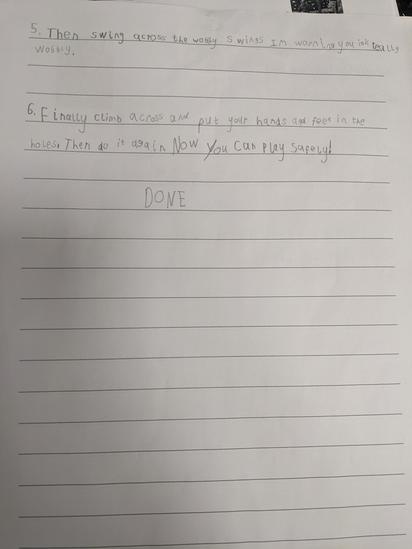 5. Then swing across the wobly swings Im warning you its really
wobbly.
6. Finally climb across and put your hands and feet in the
holes. Then do it again Now you Can Play Safely!
DONE